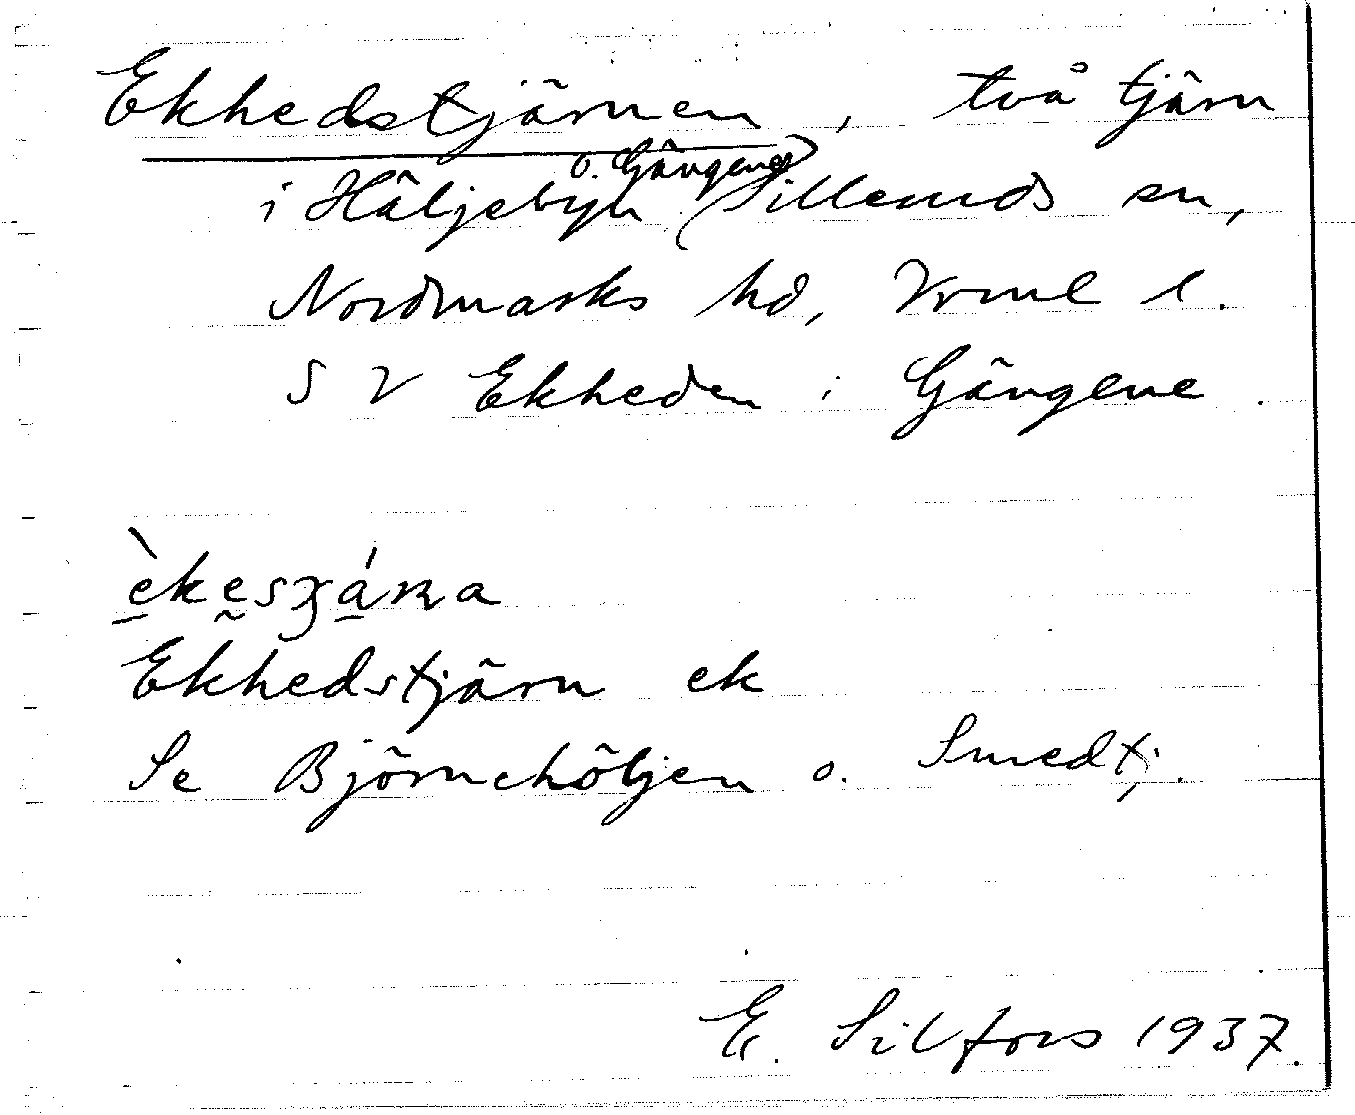 Ekhedstjärnen, två tjärn
i Häljebyn o. Gängene, Silleruds sn,
Nordmarks hd, Vrml l.
S V Ekheden i Gängene.
Ekhedstjärn ek
Se Björnehöljen o. Smedtj.
E. Silfors 1937.